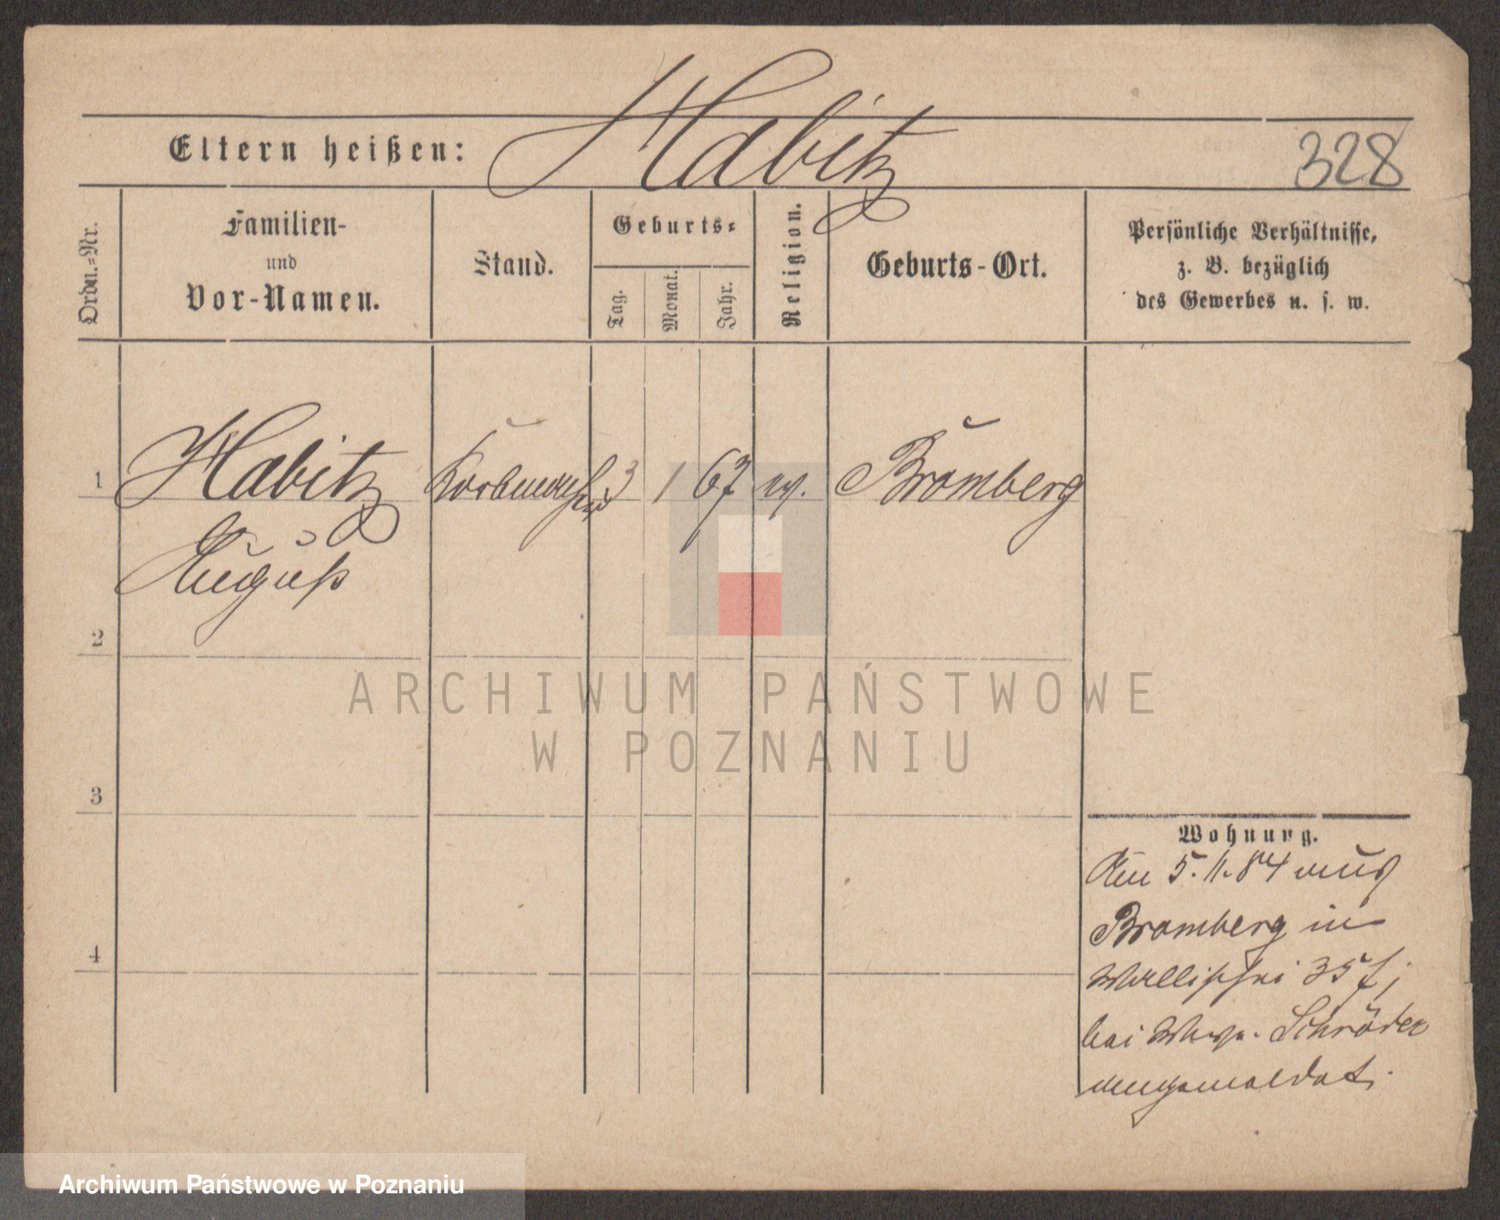 Eltern heißen: Habitz 328
Ordn.=Nr.
Familien-
und
Vor-Namen.
Stand.
Geburts=
Tag.
Monat.
Jahr.
Religion.
Geburts-Ort.
Persönliche Verhältnisse,
z. B. bezüglich
des Gewerbes u. s. w.
1 Habitz Korbmacher 3 1 67 ev. Bromberg
August
2
3
Wohnung.
Am 5. 11. 84 aus
Bromberg in
4
Wallischei 35
bei Schröder
angemeldet.
ARCHIWUM PAŃSTWOWE
W POZNANIU
Archiwum Państwowe w Poznaniu